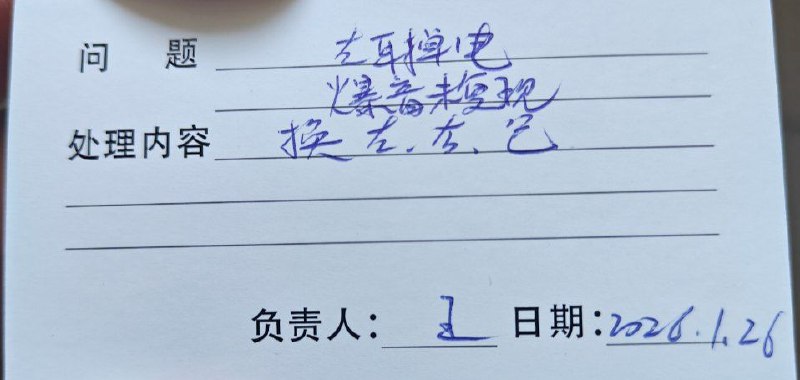 问 题 左耳掉电
爆音未复现
处理内容 换左、右、仓
负责人: 王 日期: 2026.1.26